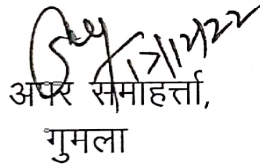 17/12/22
अपर समाहर्त्ता,
गुमला